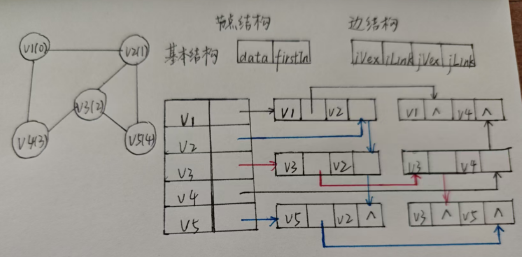 节点结构 边结构
基本结构 data firstIn iVex iLink jVex jLink
V1(0) V2(1)
V3(2)
V4(3) V5(4)
V1 V1 V2 V1 ∧ V4 ∧
V2
V3 V3 V2 V3 V4
V4
V5 V5 V2 ∧ V3 ∧ V5 ∧